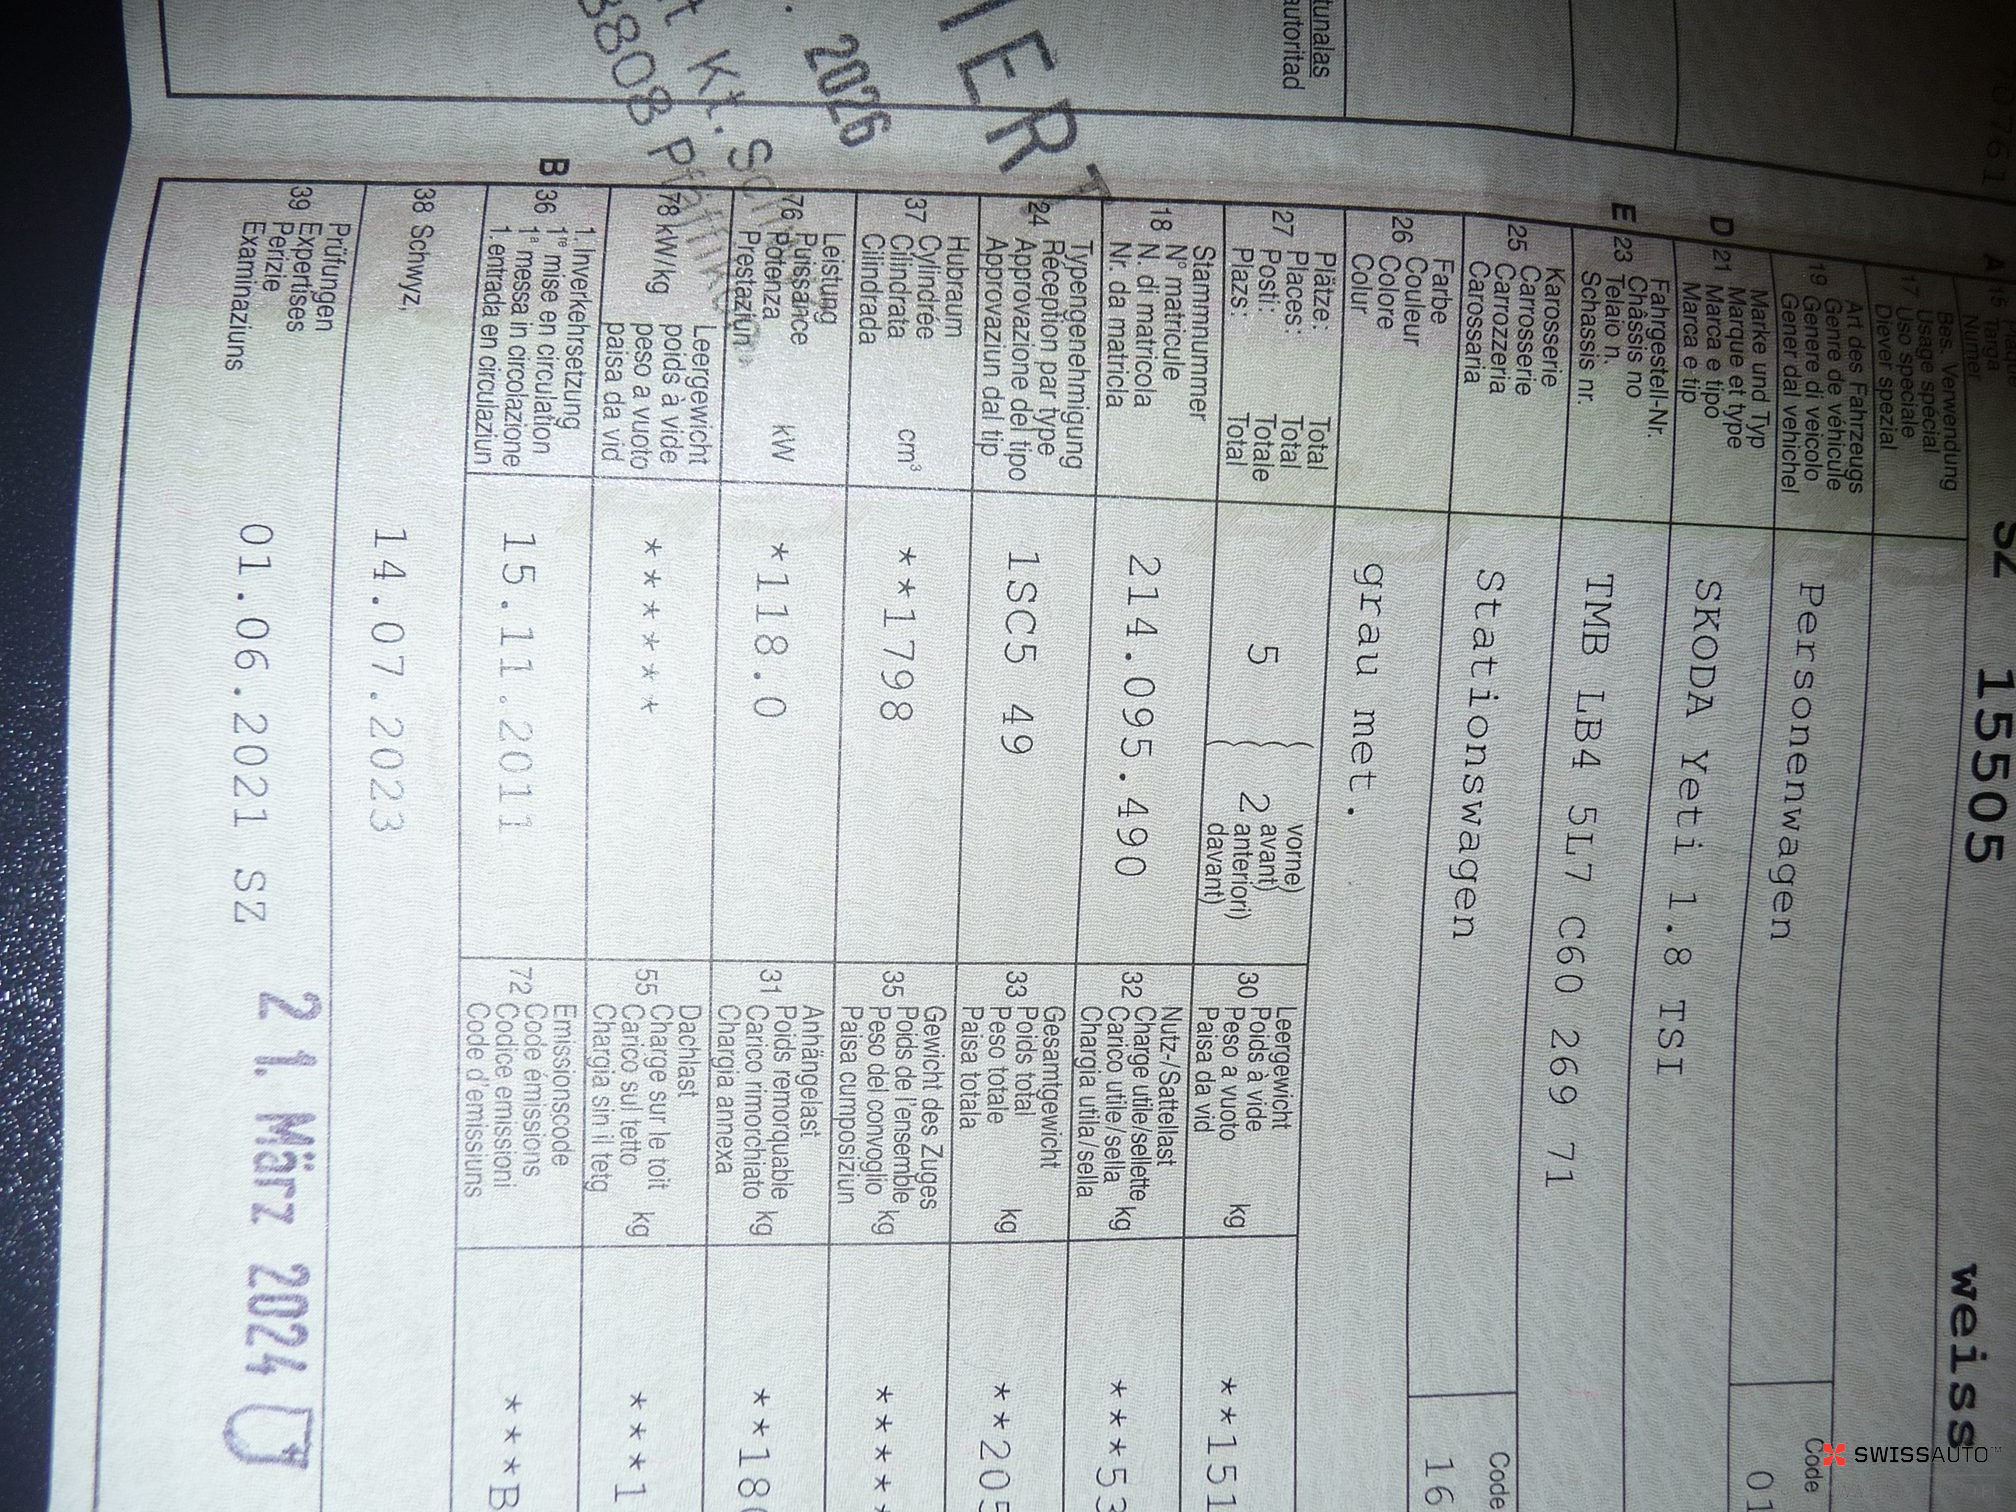 tunalas
autoritad
IERT
2026
Kt. Sch
8808 Pfäffikon
A 15 Targa
Numer
SZ 15505 weiss
Bes. Verwendung
17 Usage spécial
Uso speciale
Diever spezial
Art des Fahrzeugs
19 Genre de véhicule
Genere di veicolo
Gener dal vehichel
Personenwagen
Code
01
Marke und Typ
D 21 Marque et type
Marca e tipo
Marca e tip
SKODA Yeti 1.8 TSI
Fahrgestell-Nr.
E 23 Châssis no
Telaio n.
Schassis nr.
TMB LB4 5L7 C60 269 71
Karosserie
25 Carrosserie
Carrozzeria
Carossaria
Stationswagen
Code
16
Farbe
26 Couleur
Colore
Colur
grau met.
Plätze: Total
27 Places: Total
Posti: Totale
Plazs: Total
5
2
vorne)
avant)
anteriori)
davant)
Leergewicht
30 Poids à vide
Peso a vuoto kg
Paisa da vid
**151
Stammnummer
18 N° matricule
N. di matricola
Nr. da matricla
214.095.490
Nutz-/Sattellast
32 Charge utile/sellette kg
Carico utile/sella
Chargia utila/sella
***53
Typengenehmigung
24 Réception par type
Approvazione del tipo
Approvaziun dal tip
1SC5 49
Gesamtgewicht
33 Poids total kg
Peso totale
Paisa totala
**205
Hubraum
37 Cylindrée cm³
Cilindrata
Cilindrada
**1798
Gewicht des Zuges
35 Poids de l'ensemble kg
Peso del convoglio
Paisa cumposiziun
*****
Leistung
76 Puissance kW
Potenza
Prestaziun
*118.0
Anhängelast
31 Poids remorquable kg
Carico rimorchiato
Chargia annexa
**18
Leergewicht
78 kW/kg poids à vide
peso a vuoto
paisa da vid
*******
Dachlast
55 Charge sur le toit kg
Carico sul tetto
Chargia sin il tetg
***1
1. Inverkehrsetzung
B 36 1re mise en circulation
1a messa in circolazione
1. entrada en circulaziun
15.11.2011
Emissionscode
72 Code émissions
Codice emissioni
Code d'emissiuns
***B
38 Schwyz,
14.07.2023
Prüfungen
39 Expertises
Perizie
Examinaziuns
01.06.2021 SZ
21. März 2024
SWISSAUTO™